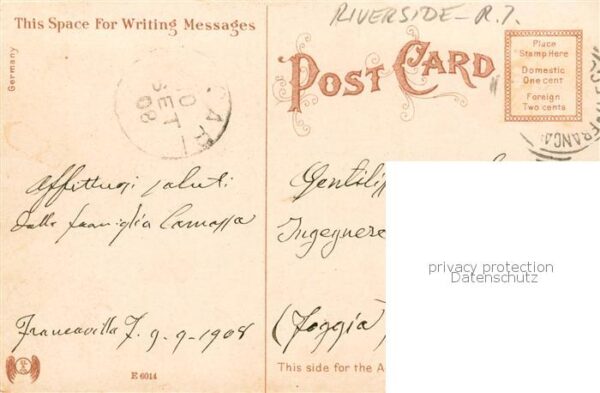 RIVERSIDE - R.I.
This Space For Writing Messages
Germany
POST CARD
Place
Stamp Here
Domestic
One cent
Foreign
Two cents
BARI
SET
08
FRANCAV
Affettuosi saluti
dalla famiglia
Francavilla F. 9-9-1908
Gentiliss
Ingegnere
(Foggia)
privacy protection
Datenschutz
This side for the A
E 6014